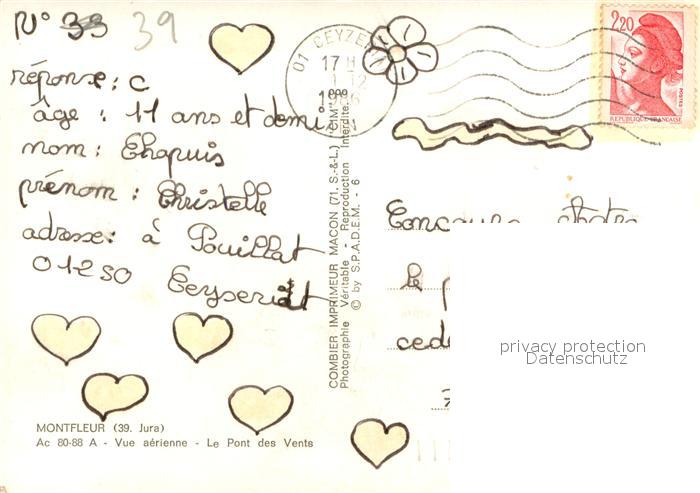 N° 33 39
réponse : C
âge : 11 ans et demi
nom : Chapuis
prénom : Christelle
adresse : à Pouillat
01250 Ceyseriat
MONTFLEUR (39. Jura)
Ac 80-88 A - Vue aérienne - Le Pont des Vents
COMBIER IMPRIMEUR MACON (71, S.-&-L.) "CIM"
Photographie Véritable - Reproduction Interdite.
© by S.P.A.D.E.M. - 6
01 CEYZE
17 H
2,20
POSTES
REPUBLIQUE FRANÇAISE
Concours
le
cede
privacy protection
Datenschutz